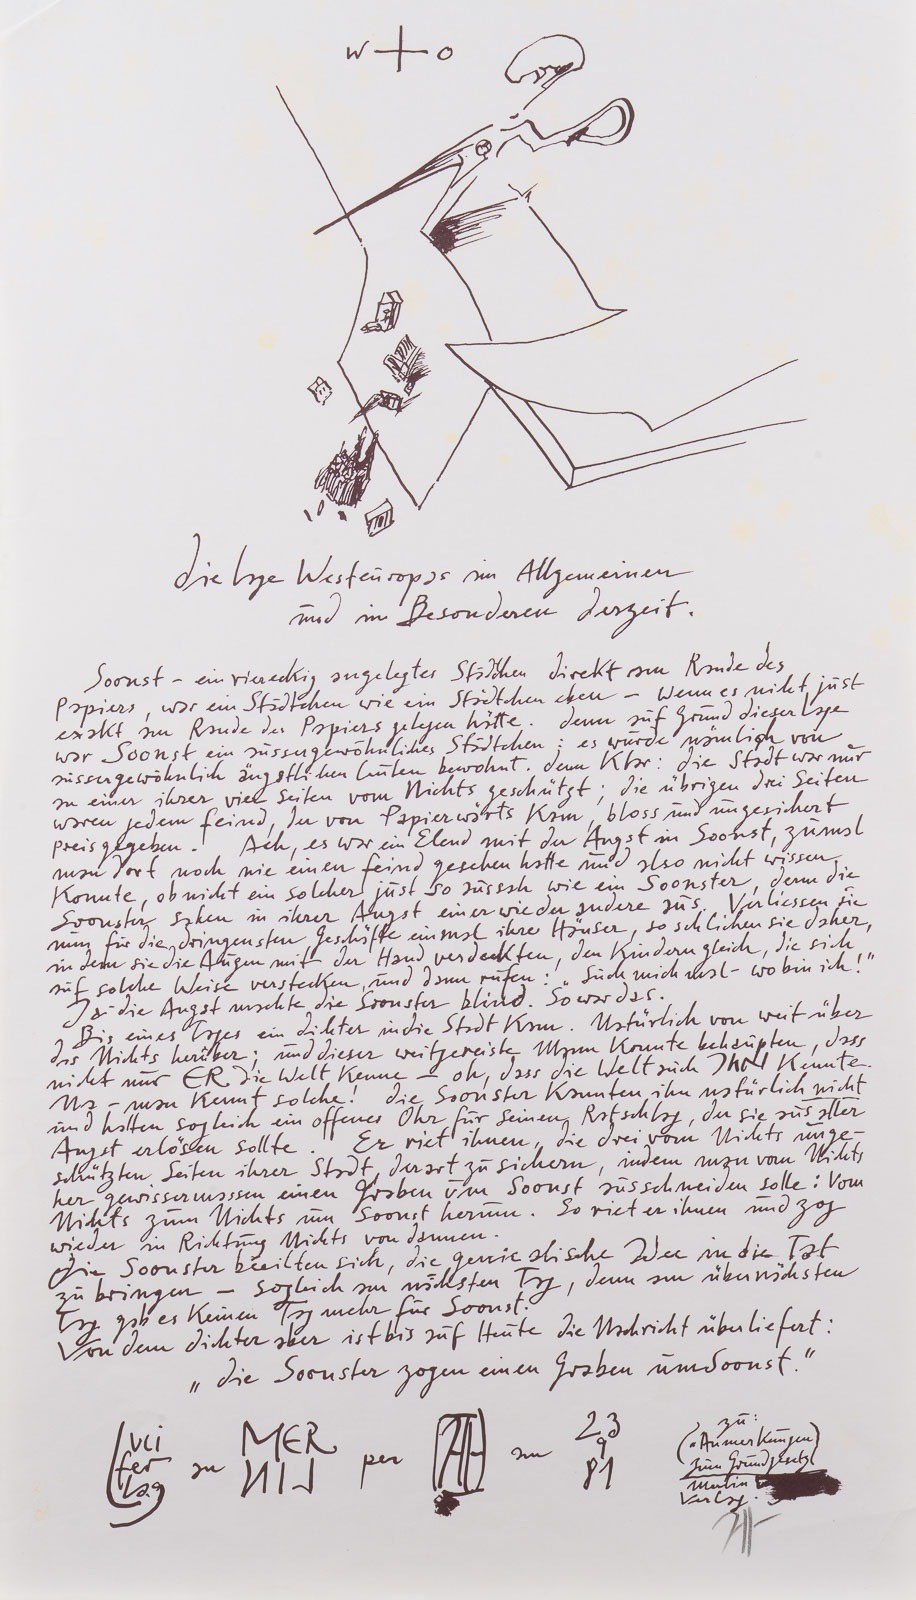 W O
Die Lage Westeuropas im Allgemeinen
und im Besonderen derzeit.
Soonst – ein viereckig angelegtes Städchen direkt am Rande des
Papiers, war ein Städtchen wie ein Städtchen eben – wenn es nicht just
exakt am Rande des Papiers gelegen hätte. Denn auf Grund dieser Lage
war Soonst ein aussergewöhnliches Städtchen; es wurde nämlich von
aussergewöhnlich ängstlichen Leuten bewohnt. Denn klar: die Stadt war nur
an einer ihrer vier Seiten vom Nichts geschützt; die übrigen drei Seiten
waren jedem Feind, der von Papierwärts kam, bloss und ungesichert
preisgegeben. Ach, es war ein Elend mit der Angst in Soonst, zumal
man dort noch nie einen Feind gesehen hatte und also nicht wissen
konnte, ob nicht ein solcher just so aussah wie ein Soonster, denn die
Soonster sahen in ihrer Angst einer wie der andere aus. Verliessen sie
nun für die dringensten Geschäfte einmal ihre Häuser, so schlichen sie daher,
indem sie die Augen mit der Hand verdeckten, den Kindern gleich, die sich
auf solche Weise verstecken und dann rufen: "Such mich mal – wo bin ich!"
Ja: die Angst machte die Soonster blind. So war das.
Bis eines Tages ein Dichter in die Stadt kam. Natürlich von weit über
das Nichts herüber; und dieser weitgereiste Mann konnte behaupten, dass
nicht nur ER die Welt kenne – oh, dass die Welt auch IHN kenne.
Na – man kennt solche! Die Soonster kannten ihn natürlich nicht
und hatten sogleich ein offenes Ohr für seinen Ratschlag, der sie aus aller
Angst erlösen sollte. Er riet ihnen, die drei vom Nichts unge-
schützten Seiten ihrer Stadt, derart zu sichern, indem man vom Nichts
her gewissermassen einen Graben um Soonst ausschneiden solle: Vom
Nichts zum Nichts um Soonst herum. So riet er ihnen und zog
wieder in Richtung Nichts von dannen.
Die Soonster beeilten sich, die genialische Idee in die Tat
zu bringen – sogleich am nächsten Tag, denn am übernächsten
Tag gab es keinen Tag mehr für Soonst.
Von dem Dichter aber ist bis auf Heute die Nachricht überliefert:
„Die Soonster zogen einen Graben um Soonst."
Luci
fer
lag
an
MER
LIN
per
am
23
9
81
zu:
("Anmerkungen)
zum Grundgesetz
Merlin
Verlag.